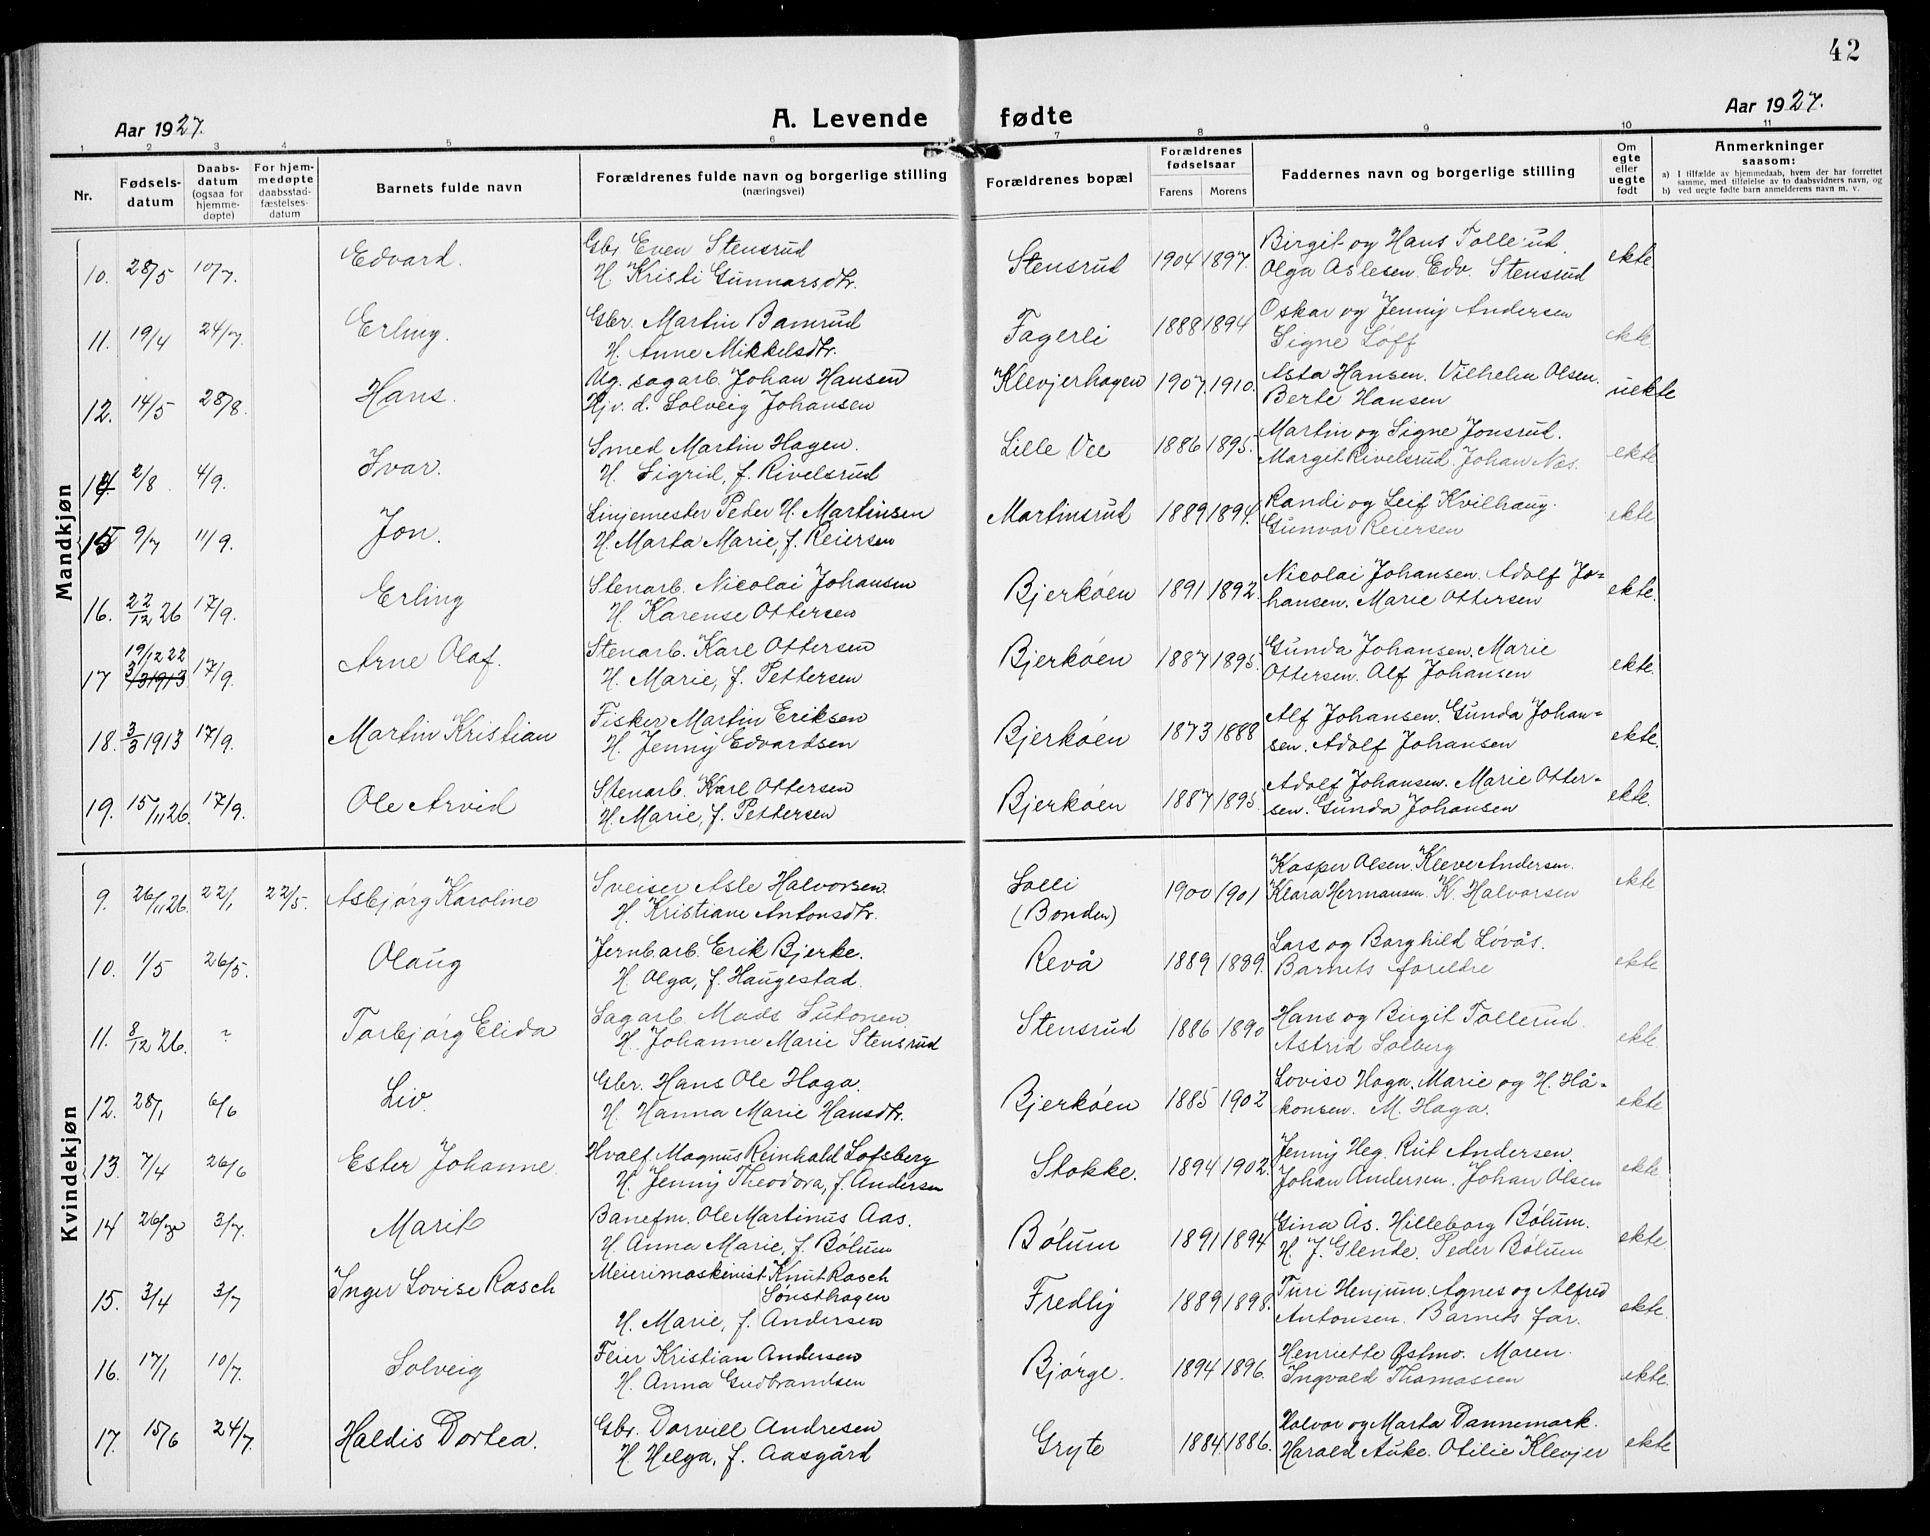 42
Aar 1927.
A. Levende fødte
Aar 1927.
1 2 3 4 5 6 7 8 9 10 11
Nr.
Fødsels-
datum
Daabs-
datum
(ogsaa for
hjemme-
døpte)
For hjem-
medøpte
daabsstad-
fæstelses-
datum
Barnets fulde navn
Forældrenes fulde navn og borgerlige stilling
(næringsvei)
Forældrenes bopæl
Forældrenes
fødselsaar
Farens Morens
Faddernes navn og borgerlige stilling
Om
egte
eller
uegte
født
Anmerkninger
saasom:
a) I tilfælde av hjemmedaab, hvem der har forrettet
samme, med tilføielse av to daabsvidners navn, og
b) ved uegte fødte barn anmelderens navn m. v.
Mandkjøn
10. 28/5 10/7. Edvard. Gbr Even Stensrud
H. Kristi Gunnarsdtr. Stensrud 1904 1897. Birgit og Hans Tollerud.
Olga Aslesen. Edv. Stensrud ekte.
11. 19/4 24/7. Erling. Gbr. Martin Bamrud
H. Anne Mikkelsdtr. Fagerli 1888 1894 Oskar og Jenny Andersen
Signe Løff ekte.
12. 14/5 28/8. Hans. Ug. sagarb. Johan Hansen
Hjv. d. Solveig Johansen Klevjerhagen 1907. 1910. Asta Hansen. Vilhelm Olsen.
Berte Hansen uekte
14 2/8 4/9. Ivar. Smed Martin Hagen.
H. Sigrid, f. Rivelsrud Lille Vee 1886 1895. Martin og Signe Jonsrud.
Margit Rivelsrud. Johan Næs. ekte
15 9/7 11/9. Jon. Linjemester Peder H. Martinsen
H. Marta Marie, f. Reiersen Martinsrud 1889 1894. Randi og Leif Kvilhaug.
Gunvor Reiersen ekte
16. 22/12 26 17/9. Erling Stenarb. Nicolai Johansen
H. Karense Ottersen Bjerkøen 1891 1892. Nicolai Johansen. Adolf Jo-
hansen. Marie Ottersen ekte.
17 19/12 22 3/3 1913 17/9. Arne Olaf. Stenarb. Karl Ottersen
H. Marie, f. Pettersen Bjerkøen 1887 1895. Gunda Johansen. Marie
Ottersen. Alf Johansen ekte.
18. 3/3 1913 17/9. Martin Kristian Fisker Martin Eriksen
H. Jenny Edvardsen Bjerkøen 1873 1888 Alf Johansen. Gunda Johan-
sen. Adolf Johansen ekte.
19. 15/11 26. 17/9. Ole Arvid Stenarb. Karl Ottersen
H. Marie, f. Pettersen Bjerkøen 1887 1895. Adolf Johansen. Marie Otter-
sen. Gunda Johansen ekte.
Kvindekjøn
9. 26/11 26. 22/1 22/5. Asbjørg Karoline Sveiser Asle Halvorsen
H. Kristiane Antonsdtr. Solli
(Bonden) 1900 1901 Kasper Olsen. Kleve Andersen.
Klara Hermansen. K. Halvorsen ekte
10. 1/5 26/5. Olaug Jernb.arb. Erik Bjerke.
H. Olga, f. Haugestad. Revå 1889 1889. Lars og Borghild Løvås.
Barnets foreldre ekte
11. 8/12 26. ? Torbjørg Elida Sagarb. Mads Sutonen
H. Johanne Marie Stensrud Stensrud 1886 1890 Hans og Birgit Tollerud.
Astrid Solberg ekte.
12. 28/1 6/6 Liv. Gbr. Hans Ole Haga.
H. Hanna Marie Hansdtr. Bjerkøen 1885 1902 Lovise Haga. Marie og H. Hå-
konsen. M. Haga. ekte
13. 7/4 26/6 Ester Johanne Hvalf. Magnus Reinhald Lofsberg
H. Jenny Theodora, f. Andersen Stokke. 1894 1902. Jenny Heg. Rut Andersen.
Johan Andersen. Johan Olsen ekte
14 3/7. Marit Banefm. Ole Martinus Aas.
H. Anna Marie, f. Bølum Bølum 1891 1894 Gina Ås. Hilleborg Bølum.
H. J. Glende. Peder Bølum ekte.
15. 3/4 3/7 Inger Lovise Rasch Meierimaskinist Knut Rasch
Sønsthagen
H. Marie, f. Andersen Fredly 1889 1898. Turi Henjum. Agnes og Alfred
Antonsen. Barnets far. ekte.
16. 17/1 10/7. Solveig Feier Kristian Andersen
H. Anna Gudbrandsen Bjørge. 1894 1896. Henriette Østmo. Maren.
Ingvald Thomassen ekte.
17. 15/6 24/7 Haldis Dortea. Gbr. Dorvill Andresen
H Helga, f. Aasgård Gryte 1884 1886. Halvor og Marta Dannemark.
Harald Auke. Otilie Klevjer ekte